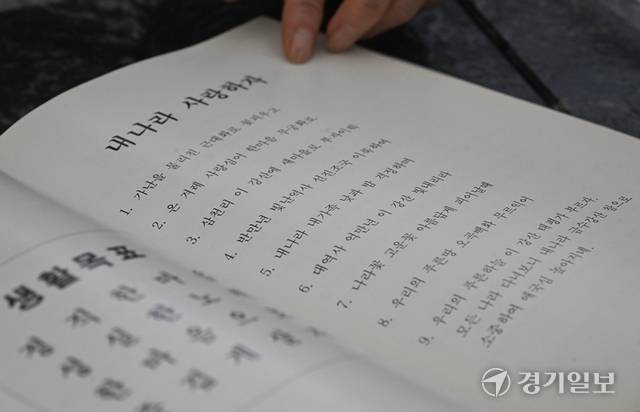 내나라 사랑하자
1. 가난을 물리친 근대화로 물려주고
2. 온 겨레 사랑심어 한마음 무궁화로
3. 삼천리 이 강산에 새마을로 무지이뤄
4. 반만년 빛난역사 신진조국 이룩하여
5. 내나라 내가족 낮과 밤 걱정하며
6. 대역사 억만년 이 강산 빛내리라
7. 나라꽃 고운꽃 아름답게 피어날때
8. 우리의 푸른땅 오곡백화 무르익어
9. 우리의 푸른하늘 이 강산 태평가 부르자.
모든 나라 다녀보니 내나라 금수강산 참으로
소중하여 애국심 높아지네.
생활목표
정직한 마
성실한 노
한마음 오
경기일보